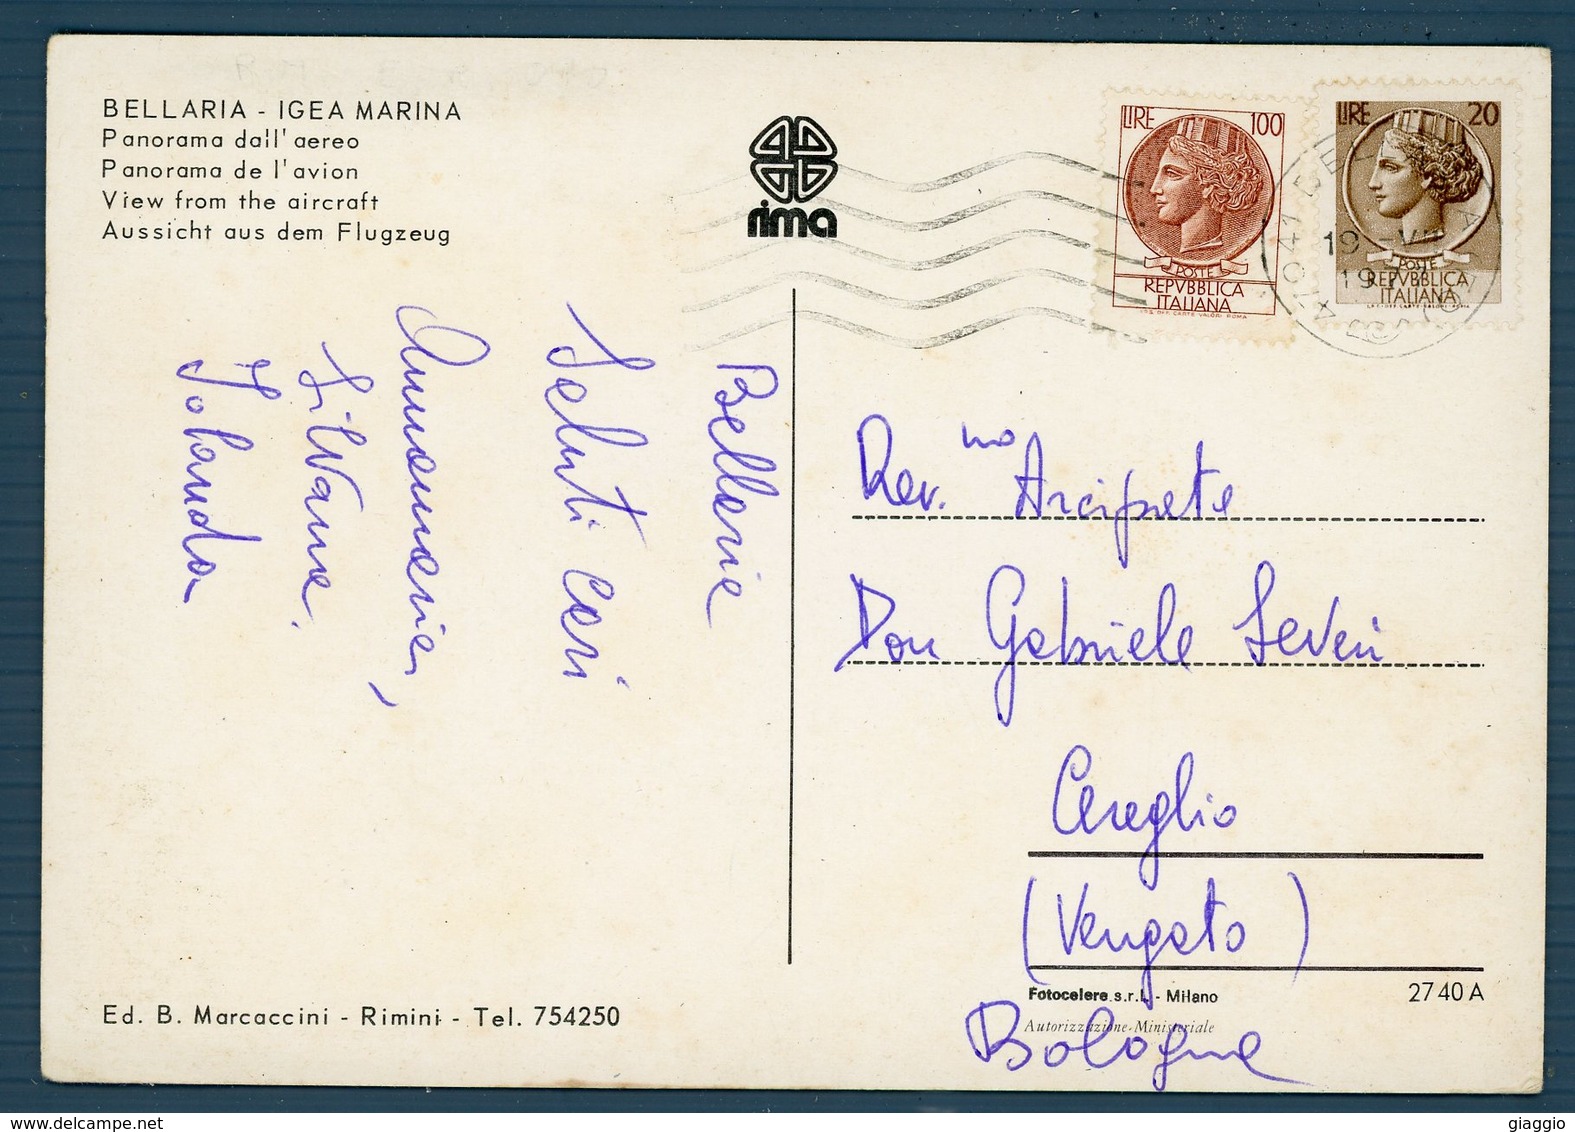 BELLARIA - IGEA MARINA
Panorama dall'aereo
Panorama de l'avion
View from the aircraft
Aussicht aus dem Flugzeug
rima
LIRE 100
POSTE
REPVBBLICA
ITALIANA
I.P.S. OFF. CARTE VALORI ROMA
LIRE 20
POSTE
REPVBBLICA
ITALIANA
I.P.S. OFF. CARTE VALORI ROMA
47041 BEL
19
Bellaria
Saluti cari
Annamaria,
Silvana.
Jolanda
Rev.mo Arciprete
Don Gabriele Severi
Cereglio
(Vergato)
Bologna
Ed. B. Marcaccini - Rimini - Tel. 754250
Fotocelere s.r.l. - Milano
2740 A
Autorizzazione Ministeriale
giaggio